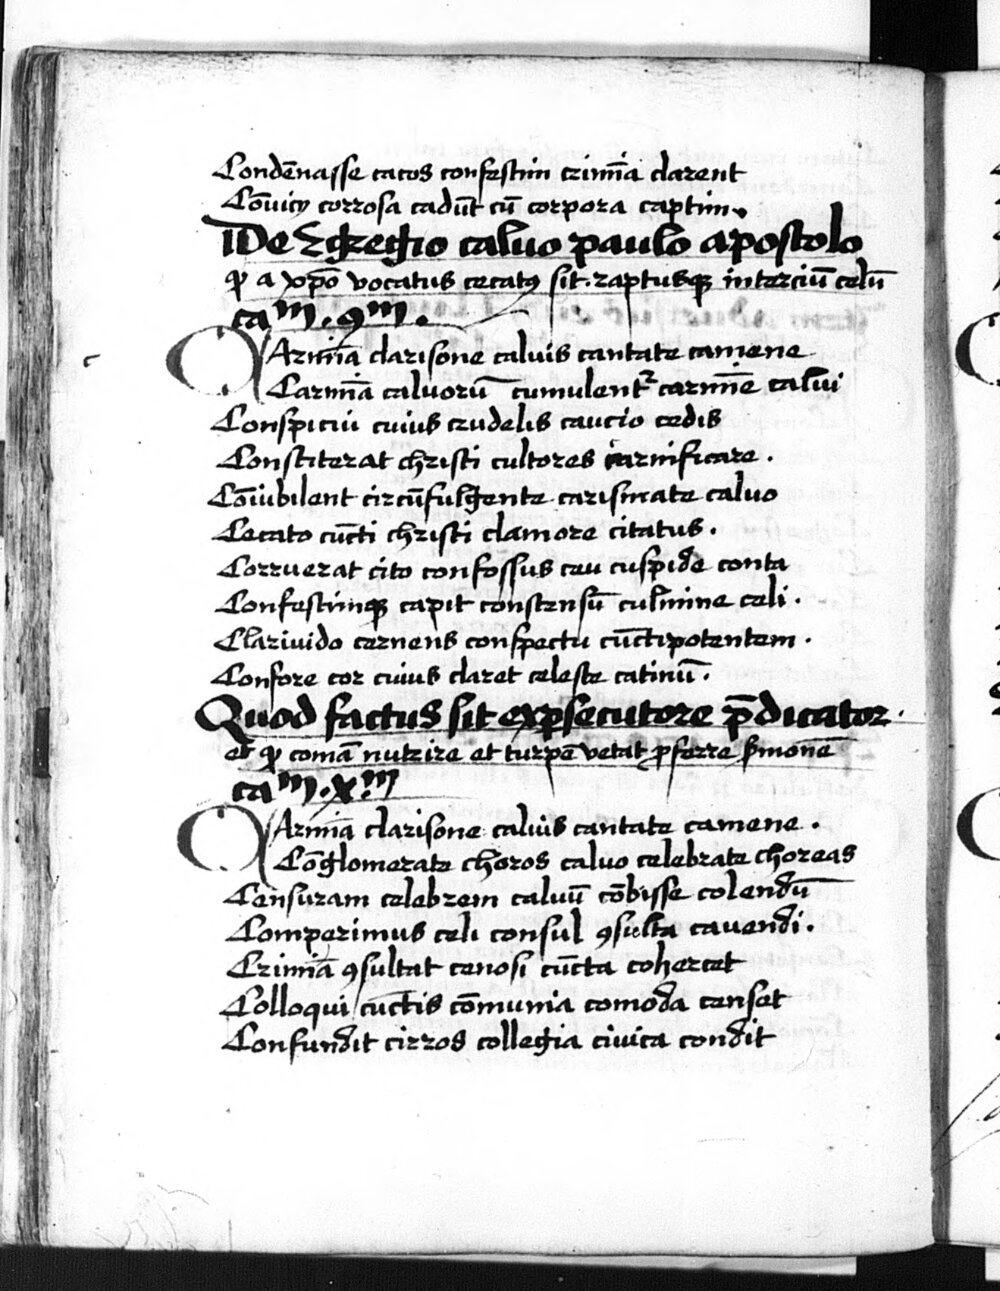 Condēnasse cacos confestim crimīa clarent
Cōuicij corrosa cadūt cū corpora captim
De Egregio caluo paulo apostolo
qͥ a xpō vocatus cecatꝰ sit. raptusqꝫ in terciū celū
caᵐ. 9ᵐ.
CArmīa clarisone caluis cantate camene
Carmīa caluorū cumulentᷣ carmīe calui
Conspicui cuius crudelis caucio cedis
Constiterat christi cultores carnificare .
Cōiubilent circūfulgente carismate caluo
Cecato cūcti christi clamore citatus .
Corruerat cito confossus ceu cuspide conta
Confestimqꝫ capit constensū culmine celi .
Clariuido cernens conspectu cūctipotentem .
Confore cor cuius claret celeste catinū .
Quod factus sit ex pſecutore p̄dicator .
et qͥ comā nutrire et turpē vetat pferre ſmonē
caᵐ. X.ᵐ
CArmīa clarisone caluis cantate camene .
Cōglomerate choros caluo celebrate choreas
Censuram celebrem caluū cōbisse colendū
Comperimus celi consul ꝯsulta cauendi .
Crimīa ꝯsultat cenosi cūcta cohercet
Colloqui cūctis cōmunia comoda censet
Confundit cirros collegia ciuica condit